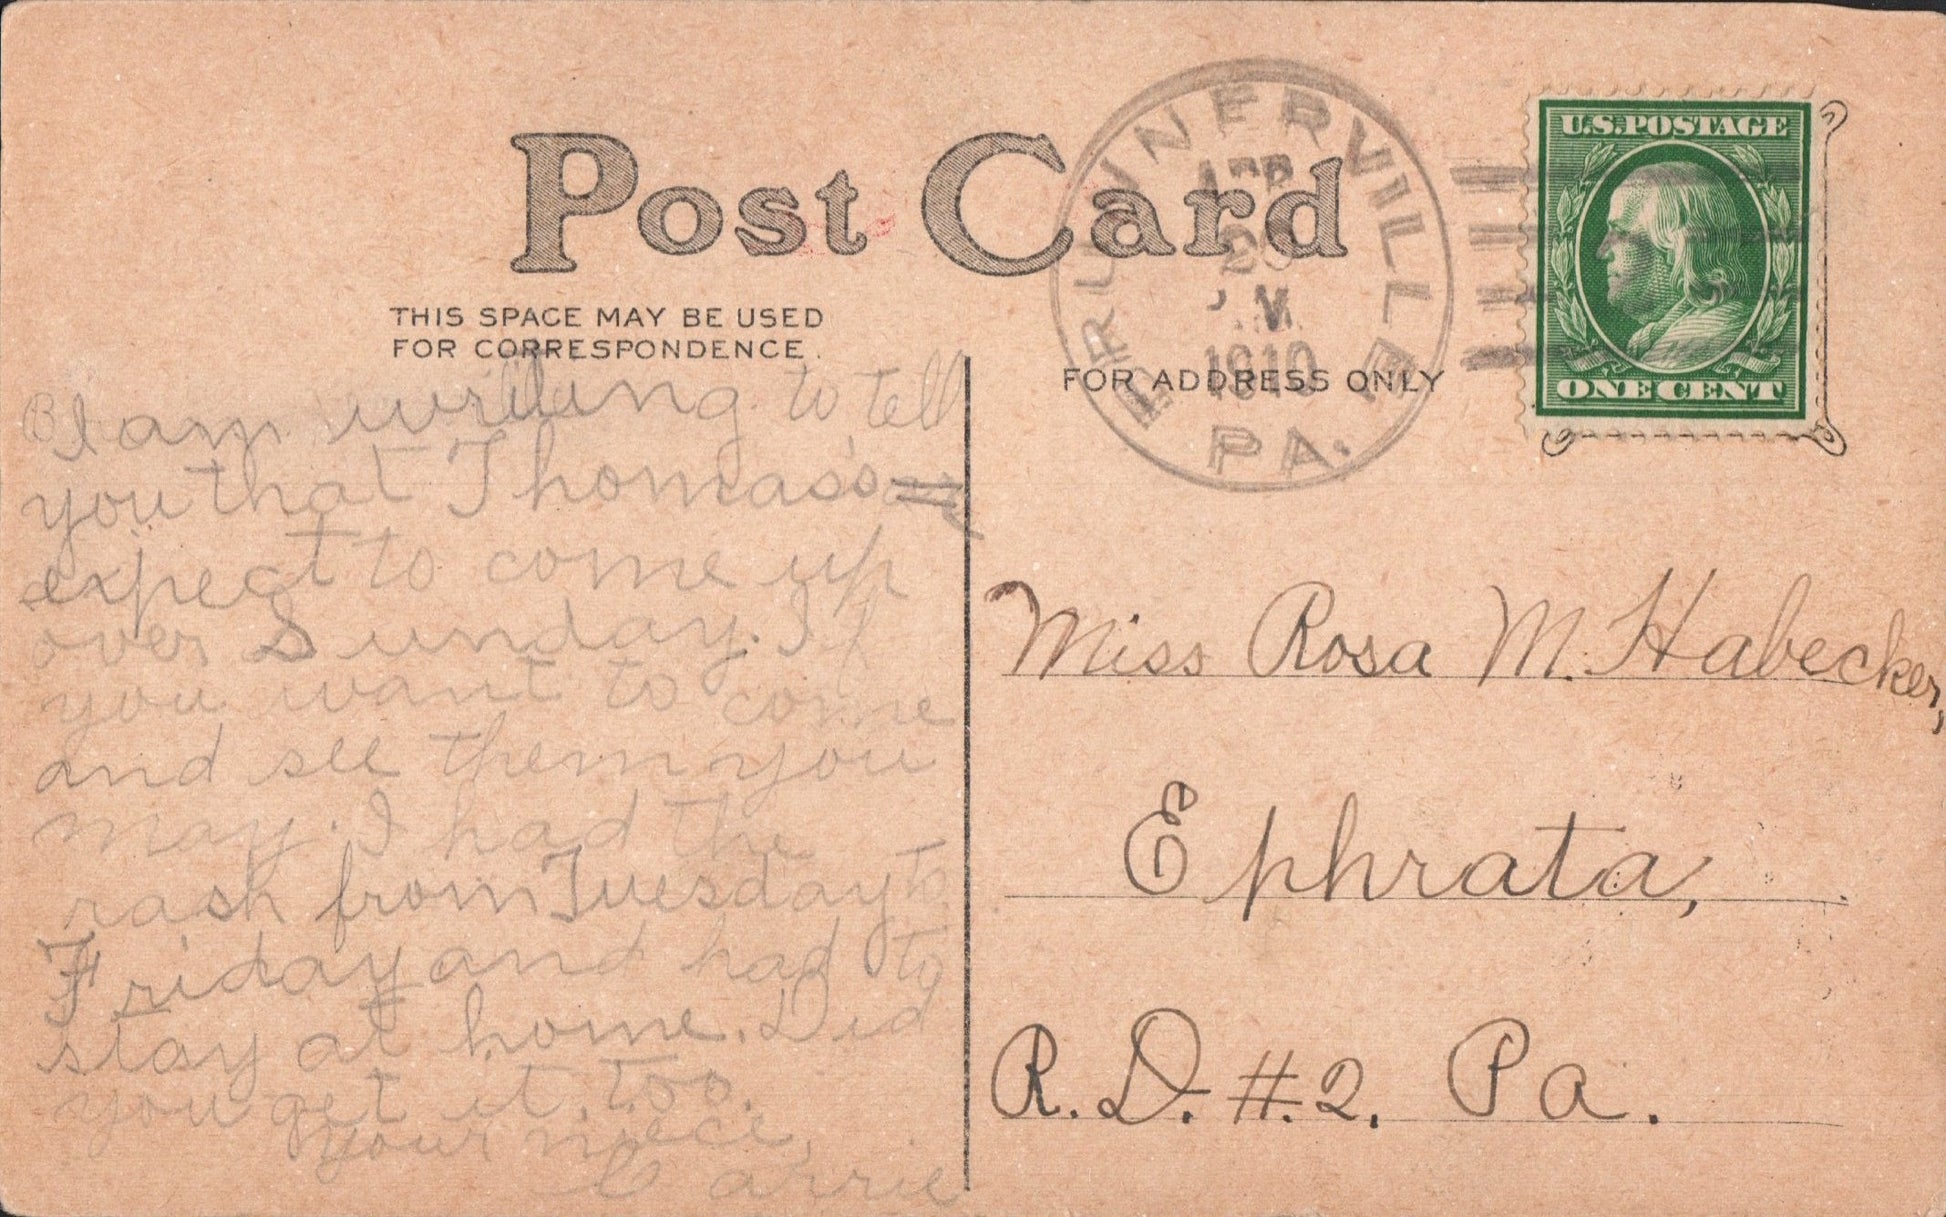 Post Card
THIS SPACE MAY BE USED
FOR CORRESPONDENCE.
FOR ADDRESS ONLY
BRUNNERVILLE
APR
1910
PA.
U.S.POSTAGE
ONE CENT
I am writing to tell
you that Thomas's
expect to come up
over Sunday. If
you want to come
and see them you
may. I had the
rash from Tuesday to
Friday and had to
stay at home. Did
you get it too.
Your niece,
Carrie
Miss Rosa M. Habecker,
Ephrata,
R. D. #. 2. Pa.